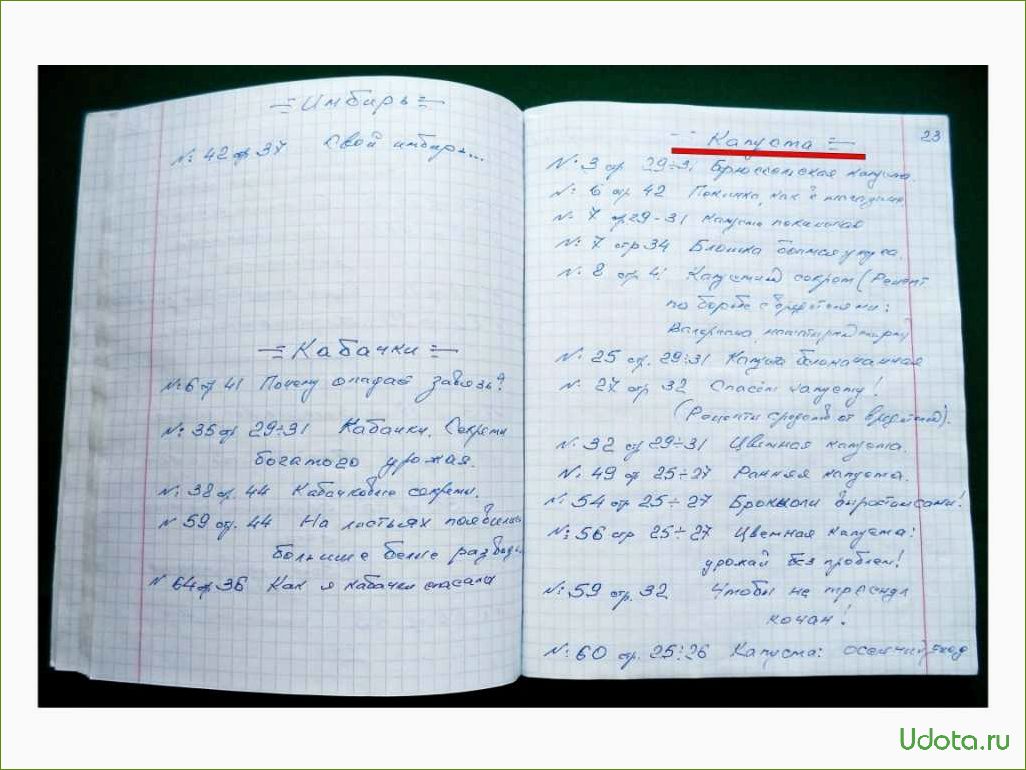 Имбирь
№ 42 стр 37 Свой имбирь...
Кабачки
№ 6 стр 41 Почему опадает завязь?
№ 35 стр 29÷31 Кабачки. Секреты
богатого урожая.
№ 38 стр. 44 Кабачковые секреты.
№ 59 стр. 44 На листьях появились
большие белые разводы
№ 64 стр 36 Как я кабачки спасала
23
Капуста
№ 3 стр. 29÷31 Брюссельская капуста.
№ 6 стр. 42 Пекинка, как в магазине
№ 7 стр 29-31 Капуста пекинская
№ 7 стр 34 Блошка боится уксуса.
№ 8 стр. 41 Капустный секрет (Рецепт
по борьбе с вредителями:
Валерьяна, нашатырный спирт)
№ 25 стр. 29÷31 Капуста белокочанная
№ 27 стр 32 Спасём капусту!
(Рецепты средств от вредителей).
№ 32 стр 29÷31 Цветная капуста.
№ 49 стр 25÷27 Ранняя капуста.
№ 54 стр 25÷27 Брокколи вырастим сами!
№ 56 стр 25÷27 Цветная капуста:
урожай без проблем!
№ 59 стр. 32 Чтобы не треснул
кочан!
№ 60 стр. 25÷26 Капуста: осенний уход
Udota.ru